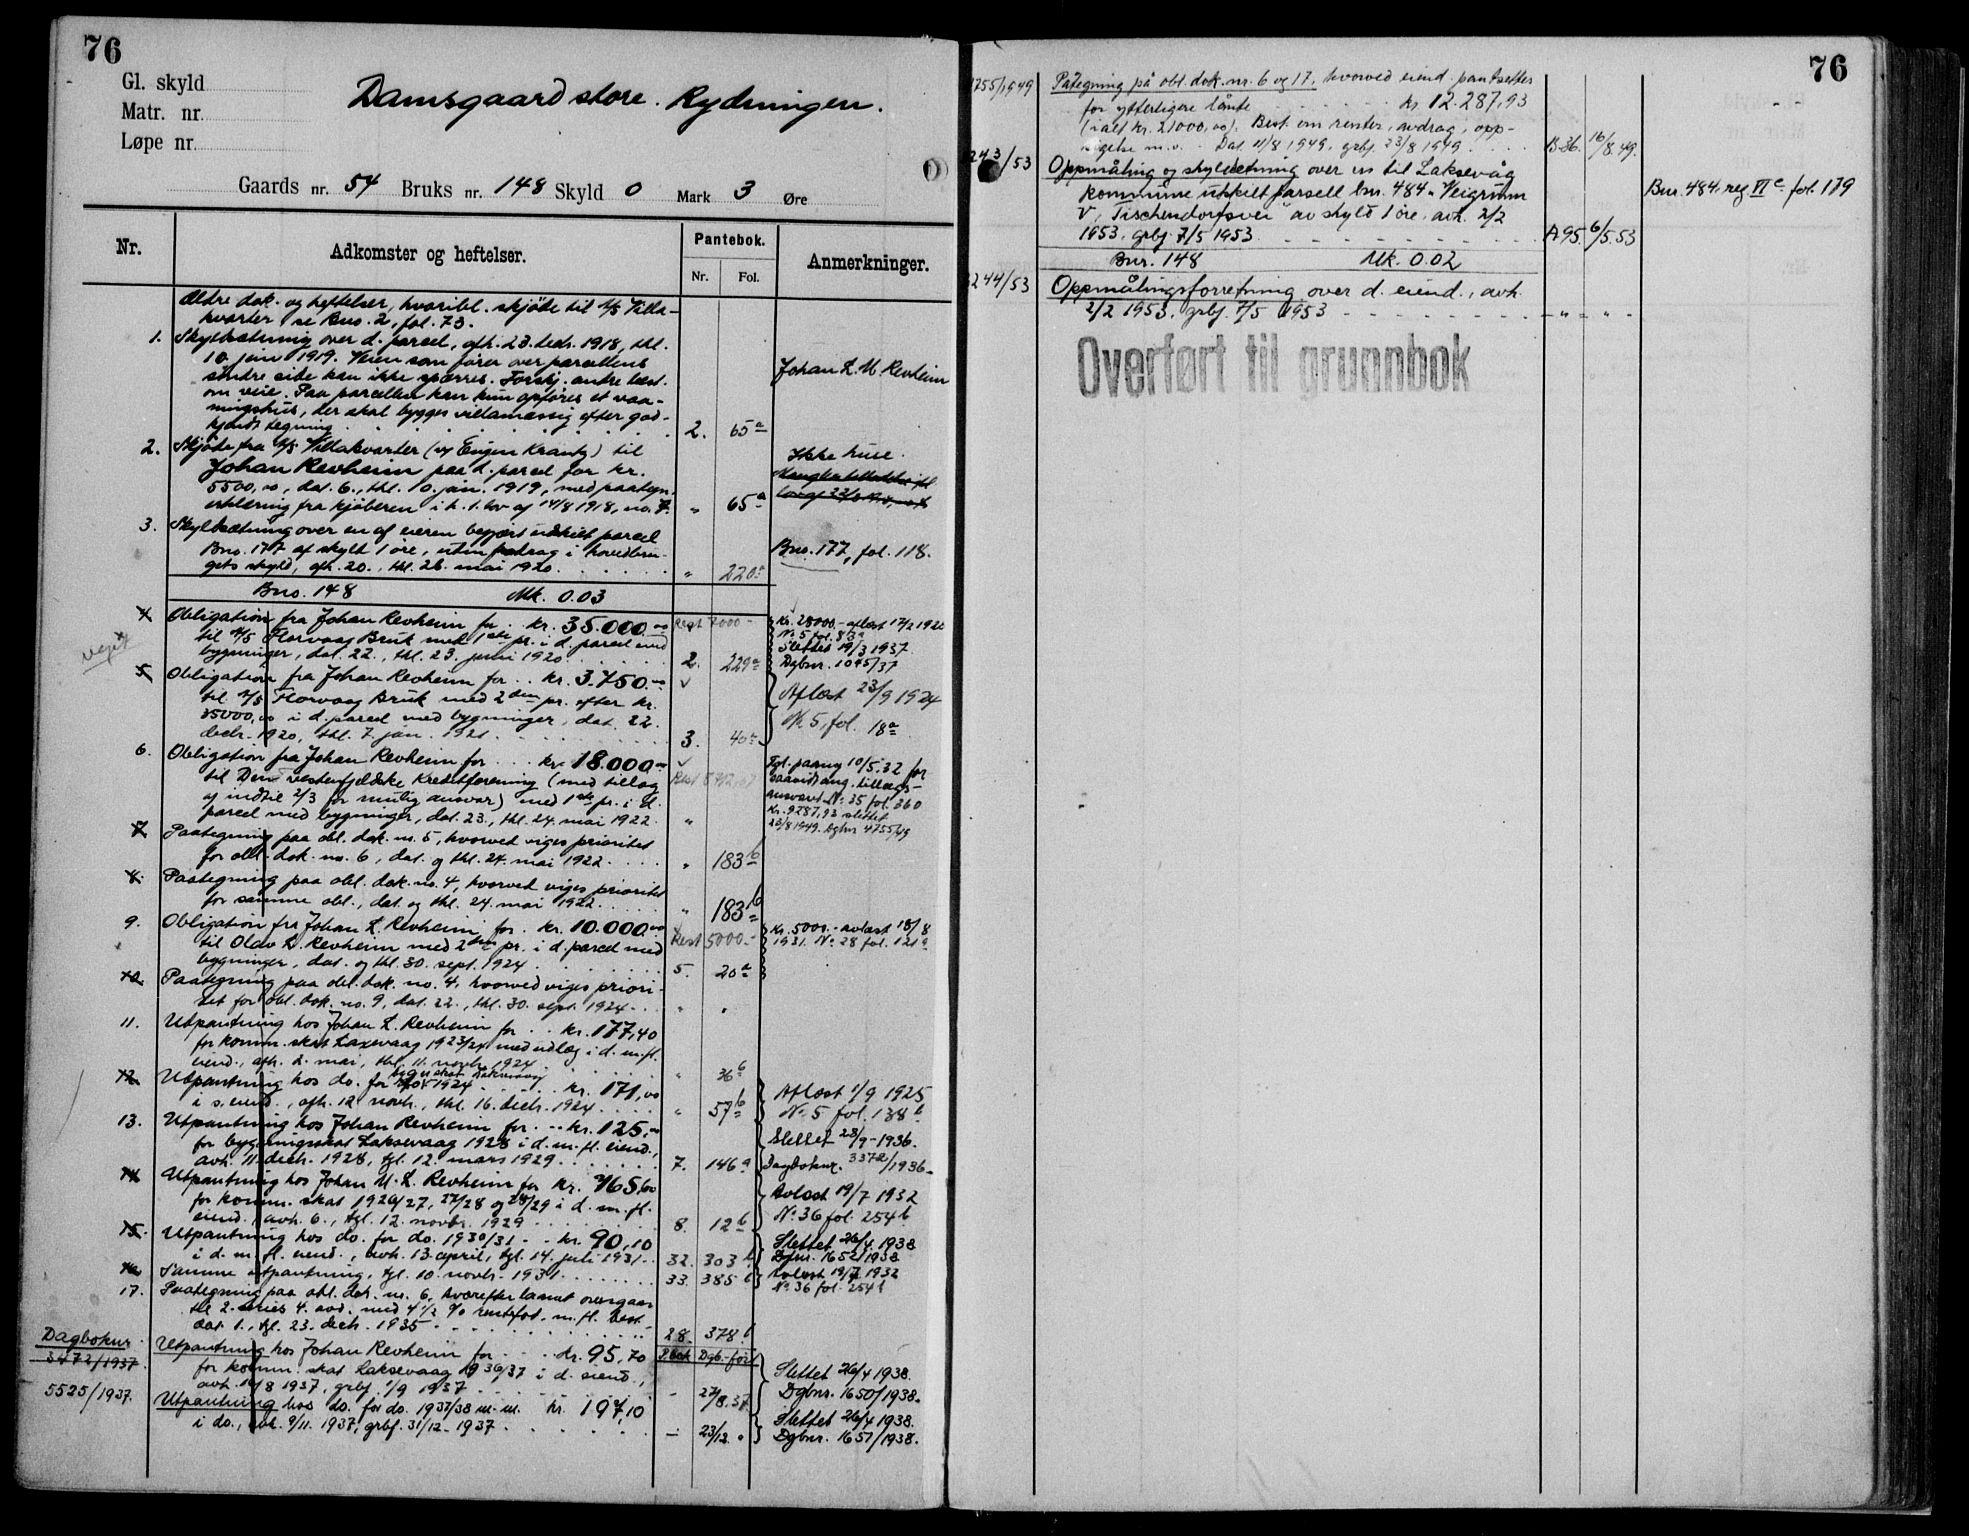 76
Gl. skyld
Matr. nr.
Løpe nr.
Damsgaard store. Rydningen.
Gaards nr. 54 Bruks nr. 148 Skyld 0 Mark 3 Øre
Nr.
Adkomster og heftelser.
Pantebok.
Nr. Fol.
Anmerkninger.
Ældre dok. og heftelser, hvoribl. skjöte til A/S Villa-
kvarter se Bno. 2, fol. 73.
1. Skyldsætning over d. parcel, afh. 23. decbr. 1918, thl.
10. jan. 1919. Veien som fører over parcellens
søndre side kan ikke spærres. Forskj. andre best.
om veie. Paa parcellen kan kun opføres et vaa-
ningshus, der skal bygges villamæssig efter god-
kjendt tegning 2. 65a
Johan L. M. Revheim
2. Skjöte fra A/S Villakvarter (v/ Eugen Krantz) til
Johan Revheim paa d. parcel for kr.
5500,00, dat. 6., thl. 10. jan. 1919, med paategn.
erklæring fra kjøberen i h. t. lov af 14/8 1918, no. 7. " 65a
Ikke huse.
3. Skyldsætning over en af eieren begjært utskilt parcel
Bno. 177 af skyld 1 øre, uten fradrag i hovedbru-
gets skyld, afh. 20., thl. 26. mai 1920. " 220a
Bno. 177, fol. 118.
Bno. 148 Mk. 0.03
4. Obligation fra Johan Revheim for kr. 35.000,00 Rest 7000.-
til A/S Florvaag Bruk med 1ste pr. i d. parcel med
bygninger, dat. 22., thl. 23. juni 1920. 2. 229a
Kr. 28000.- aflæst 17/2 1920
No 5 fol. 83a
Slettet 19/3 1937
Dgbnr. 1045/37
5. Obligation fra Johan Revheim for kr. 3.750,00
til A/S Florvaag Bruk med 2den pr. efter kr.
35000,00 i d. parcel med bygninger, dat. 22.
decbr. 1920, thl. 7. jan. 1921. 3. 40a
Aflæst 23/9 1924
No. 5, fol. 18a
6. Obligation fra Johan Revheim for kr. 18.000,00
til Den vestenfjeldske Kreditforening (med tillæg
af indtil 2/3 for mulig ansvar) med 1ste pr. i d.
parcel med bygninger, dat. 23., thl. 24. mai 1922. "
Tgl. paany 10/5.32 for
saavidt ang. tillægs-
ansvaret No 35 fol. 360
Kr. 9287,93 slettet
23/8 1949. Dgbnr 4755/49
7. Paategning paa obl. dok. no. 5, hvorved viges prioritet
for obl. dok. no. 6, dat. og thl. 24. mai 1922. " 183b
8. Paategning paa obl. dok. no. 4, hvorved viges prioritet
for samme obl., dat. og thl. 24. mai 1922. " 183b
9. Obligation fra Johan L. Revheim for kr. 10.000,00 Rest 5000.-
til Olav L. Revheim med 2den pr. i d. parcel med
bygninger, dat. og thl. 30. sept. 1924. 5. 20a
Kr. 5000.- avlæst 18/8
1931. No 28 fol. 121a
10. Paategning paa obl. dok. no. 4, hvorved viges priori-
tet for obl. dok. no. 9, dat. 22., thl. 30. sept. 1924. " "
11. Utpantning hos Johan L. Revheim for kr. 177,40
for komm. skat Laxevaag 1923/24 med utlæg i d. m. fl.
eiend., afh. 2. mai, thl. 11. novbr. 1924. " 36b
12. Utpantning hos do. for bygn.skat Laksevaag 1924 kr. 171,00
i s. eiend., afh. 12 novbr., thl. 16. decbr. 1924. " 57b
Aflæst 1/9 1925
No. 5 fol. 138b
13. Utpantning hos Johan Revheim for kr. 125,00
for bygningsskat Laksevaag 1928 i d. m. fl. eiend.,
avh. 11. decbr. 1928, tgl. 12. mars 1929. 7. 146a
Slettet 23/9-1936.
Dagboknr. 3372/1936.
14. Utpantning hos Johan M. L. Revheim for kr. 765,60
for komm. skat 1926/27, 27/28 og 28/29 i d. m. fl.
eiend., avh. 6., tgl. 12. novbr. 1929 8. 12b
Avlæst 19/7 1932
No. 36 fol. 254b
15. Utpantning hos do. for do. 1930/31 kr. 90,10
i d. m. fl. eiend., avh. 13. april, tgl. 14. juli 1931. 32. 303b
Slettet 26/4 1938
Dgbnr. 1652/1938
16. Samme utpantning, tgl. 10. novbr. 1931. 33. 385b
Avlæst 19/7 1932
No. 36 fol. 254b
17. Paategning paa obl. dok. nr. 6, hvorefter laanet overgaar
til 2. series 4. avd. med 4 1/2 % rentefot m. fl. best.
dat. 1., tgl. 23. decbr. 1935 28. 378b
Dagboknr.
3472/1937. Utpantning hos Johan Revheim for kr. 95,70 P.bok Dgb.-ført
for komm. skat Laksevaag 1936/37 i d. eiend.,
avh. 18/8 1937, grbf. 1/9 1937 - 27/8.37
Slettet 26/4 1938.
Dgbnr. 1650/1938.
5525/1937. Utpantning hos do. for do. 1937/38 m. m. kr. 197,10
i do., avh. 9/11. 1937, grbf. 31/12-1937. - 23/12 "
Slettet 26/4 1938.
Dgbnr. 1651/1938.
76
4755/1949 Påtegning på obl. dok. nr. 6 og 17, hvorved eiend. pantsettes
for ytterligere lånte kr. 12.287,93
(ialt kr. 21000,00). Best. om renter, avdrag, opp-
sigelse m.v. Dat. 11/8 1949, grbf. 23/8 1949. B.36. 16/8.49.
243/53 Oppmåling og skyldsetning over en til Laksevåg
kommune utskilt parsell bnr. 484 "Veigrunn
V, Tischendorfsvei" av skyld 1 øre, avh. 2/2
1953, grbf. 7/5 1953. A95. 6/5.53
Bnr. 484. reg VI c. fol. 179
Bnr. 148 Mk. 0.02
244/53 Oppmålingsforretning over d. eiend., avh.
2/2 1953, grbf. 7/5 1953 - " - " -
Overført til grunnbok